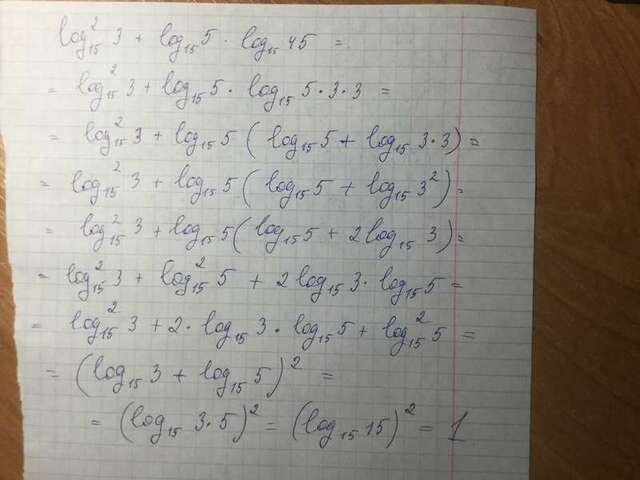 log²₁₅ 3 + log₁₅ 5 · log₁₅ 45 =
= log²₁₅ 3 + log₁₅ 5 · log₁₅ 5·3·3 =
= log²₁₅ 3 + log₁₅ 5 ( log₁₅ 5 + log₁₅ 3·3) =
= log²₁₅ 3 + log₁₅ 5 ( log₁₅ 5 + log₁₅ 3²) =
= log²₁₅ 3 + log₁₅ 5 (log₁₅ 5 + 2 log₁₅ 3) =
= log²₁₅ 3 + log²₁₅ 5 + 2 log₁₅ 3 · log₁₅ 5 =
= log²₁₅ 3 + 2 · log₁₅ 3 · log₁₅ 5 + log²₁₅ 5 =
= (log₁₅ 3 + log₁₅ 5)² =
= (log₁₅ 3·5)² = (log₁₅ 15)² = 1